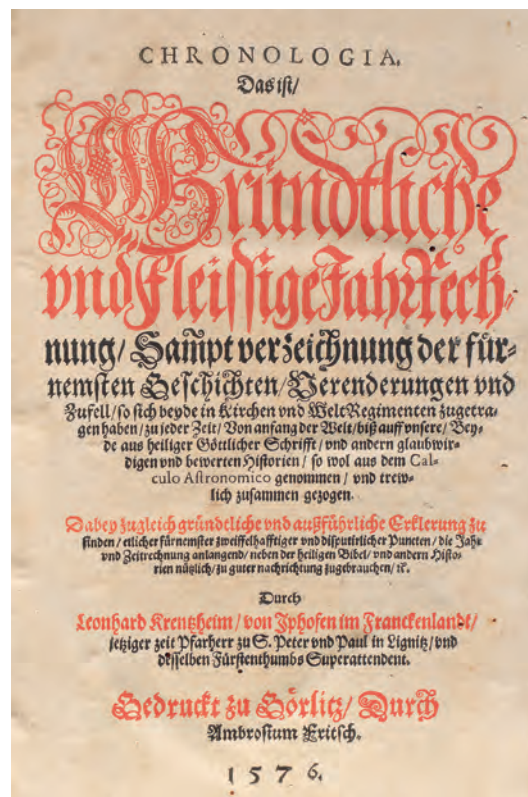 CHRONOLOGIA.
Das ist/
Gründtliche
vnd Fleissige Jahr Rech-
nung/ Sam̃pt verzeichnung der für-
nemsten Geschichten/ Verenderungen vnd
Zufell/ so sich beyde in Kirchen vnd WeltRegimenten zugetra-
gen haben/ zu jeder Zeit/ Von anfang der Welt/ biß auff vnsere/ Bey-
de aus heiliger Göttlicher Schrifft/ vnd andern glaubwir-
digen vnd bewerten Historien/ so wol aus dem Cal-
culo Astronomico genommen/ vnd trew-
lich zusammen gezogen.
Dabey zugleich gründtliche vnd außführliche Erklerung zu
finden/ etlicher fürnemster zweiffelhafftiger vnd disputirlicher Puncten/ die Jahr
vnd Zeitrechnung anlangend/ neben der heiligen Bibel/ vnd andern Histo-
rien nützlich/ zu guter nachrichtung zugebrauchen/ ꝛc.
Durch
Leonhard Krentzheim/ von Iphofen im Franckenlandt/
jetziger zeit Pfarherr zu S. Peter vnd Paul in Lignitz/ vnd
desselben Fürstenthumbs Superattendent.
Gedruckt zu Görlitz/ Durch
Ambrosium Fritsch.
1576.